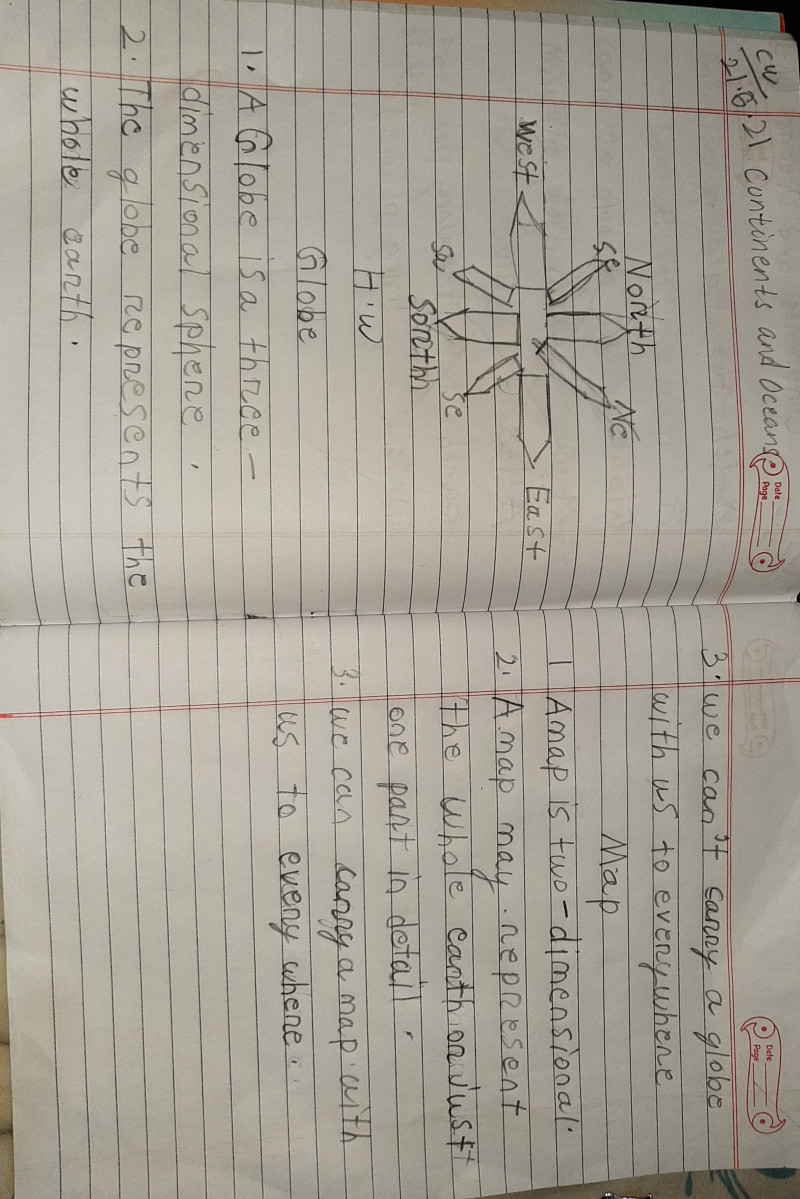 CW
21.6.21
Continents and Oceans
Date
Page
North
Se
Ne
West
East
Sw
Se
Sorthh
H.w
Globe
1. A Globe is a three-
dimensional sphere.
2. The globe represents the
whole earth.
Date
Page
3. we can't carry a globe
with us to everywhere
Map
1 A map is two-dimensional.
2. A map may. represent
the whole earth or Just
one part in detail.
3. we can carry a map. with
us to every where.